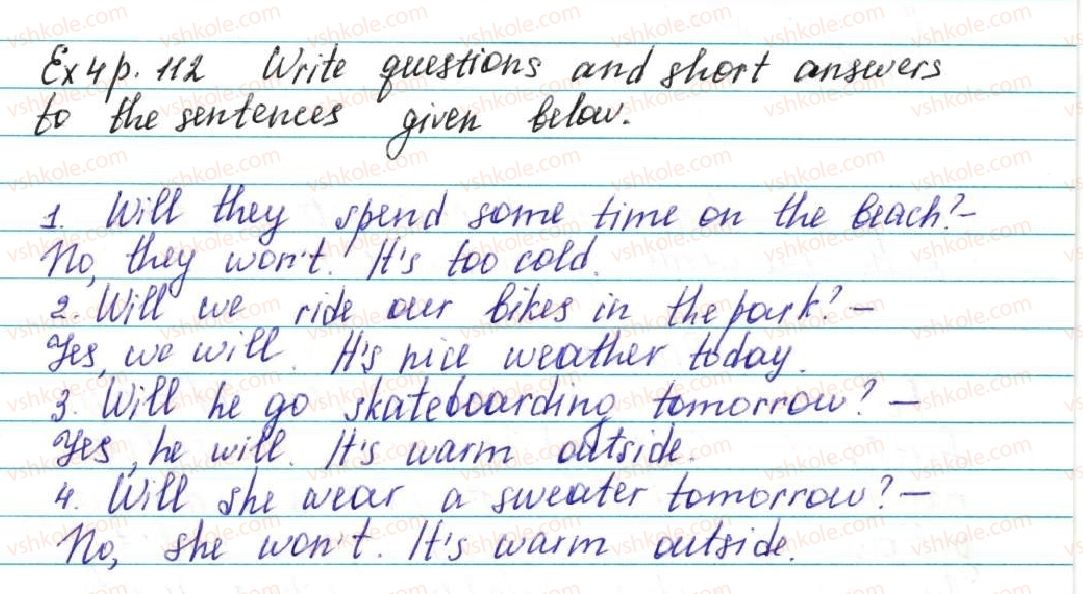 Ex 4 p. 112 Write questions and short answers
to the sentences given below.
1. Will they spend some time on the beach? –
No, they won't. It's too cold.
2. Will we ride our bikes in the park? –
Yes, we will. It's nice weather today.
3. Will he go skateboarding tomorrow? –
Yes, he will. It's warm outside.
4. Will she wear a sweater tomorrow? –
No, she won't. It's warm outside.